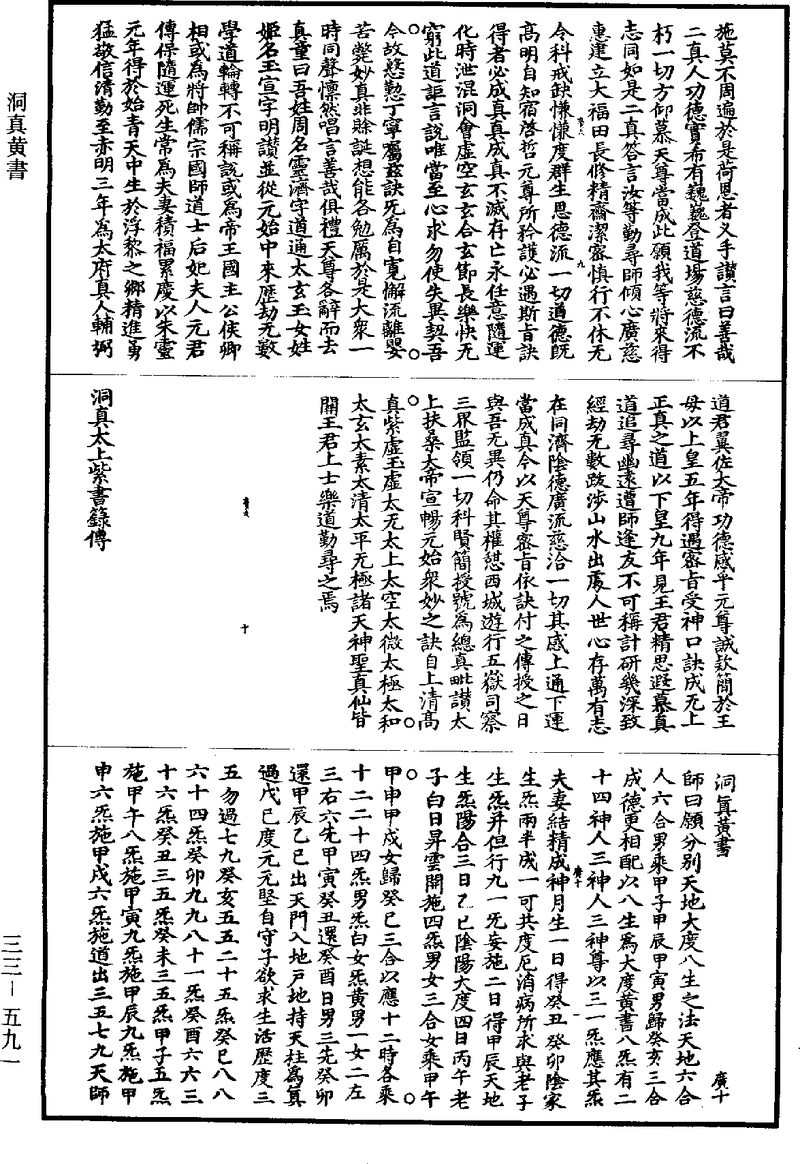 洞真黃書
三三—五九一
施莫不周遍於是荷恩者叉手讚言曰善哉
二真人功德實希有巍巍登道場慈德流不
朽一切方仰慕天尊當成此願我等將來得
志同如是二真答言汝等勤尋師傾心廣慈
惠建立大福田長修精齋潔密慎行不休无
令科戒缺慊慊度群生思德流一切道德既
高明自知宿啓哲元尊所矜護必遇斯旨訣
得者必成真真成真不滅存亡永任意隨運
化時泄混洞會虛空玄玄合玄節長樂快无
窮此道詎言說唯當至心求勿使失異契吾
今故慇懃丁寧囑玆訣旡為自寬懈流離嬰
苦斃妙真非賒誕想能各勉厲於是大衆一
時同聲懍然唱言善哉俱禮天尊各辭而去
真童曰吾姓周名靈濟字道通太玄玉女姓
姬名玉宣字明讚並從元始中來歷劫无數
學道輪轉不可稱說或為帝王國主公侯卿
相或為將帥儒宗國師道士后妃夫人元君
傳保隨運死生常為夫妻積福累慶以朱靈
元年得於始青天中生於浮黎之鄉精進勇
猛敬信清勤至赤明三年為太府真人輔弼
道君翼佐大帝功德感乎元尊誠欵簡於王
母以上皇五年得遇密旨受神口訣成无上
正真之道以下皇九年見王君精思遐慕真
道追尋幽遠遭師逢友不可稱計研幾深致
經劫无數跋涉山水出處人世心存萬有志
在同濟陰德廣流慈洽一切其感上通下運
當成真今以天尊密旨依訣付之傳授之日
與吾无異仍命其權憇西城遊行五嶽司察
三界監領一切科賢簡授號為總真毗讚太
上扶桑大帝宣暢元始衆妙之訣自上清高
真紫虛玉虛太无太上太空太微太極太和
太玄太素太清太平无極諸天神聖真仙皆
關王君上士樂道勤尋之焉
洞真太上紫書籙傳
洞真黃書
廣十
師曰願分別天地大度八生之法天地六合
人六合男乘甲子甲辰甲寅男歸癸亥三合
成德更相配以八生為大度黃書八炁有二
十四神人三神人三神尊以三一炁應其炁
夫妻結精成神月生一日得癸丑癸卯陰家
生炁兩半成一可共度厄消病所求與老子
生炁并但行九一旡妄施二日得甲辰天地
生炁陽合三日乙巳陰陽大度四日丙午老
子白日昇雲開施四炁男女三合女乘甲午
甲申甲戌女歸癸巳三合以應十二時各乘
十二二十四炁男炁白女炁黃男一女二左
三右六先甲寅癸丑還癸酉日男三先癸卯
還甲辰乙巳出天門入地戶地持天柱為真
過戊己度元元堅自守子欲求生活歷度三
五勿過七九癸亥五五二十五炁癸巳八八
六十四炁癸卯九九八十一炁癸酉六六三
十六炁癸丑三五炁癸未三五炁甲子五炁
施甲午八炁施甲寅九炁施甲辰九炁施甲
申六炁施甲戌六炁施道出三五七九天師